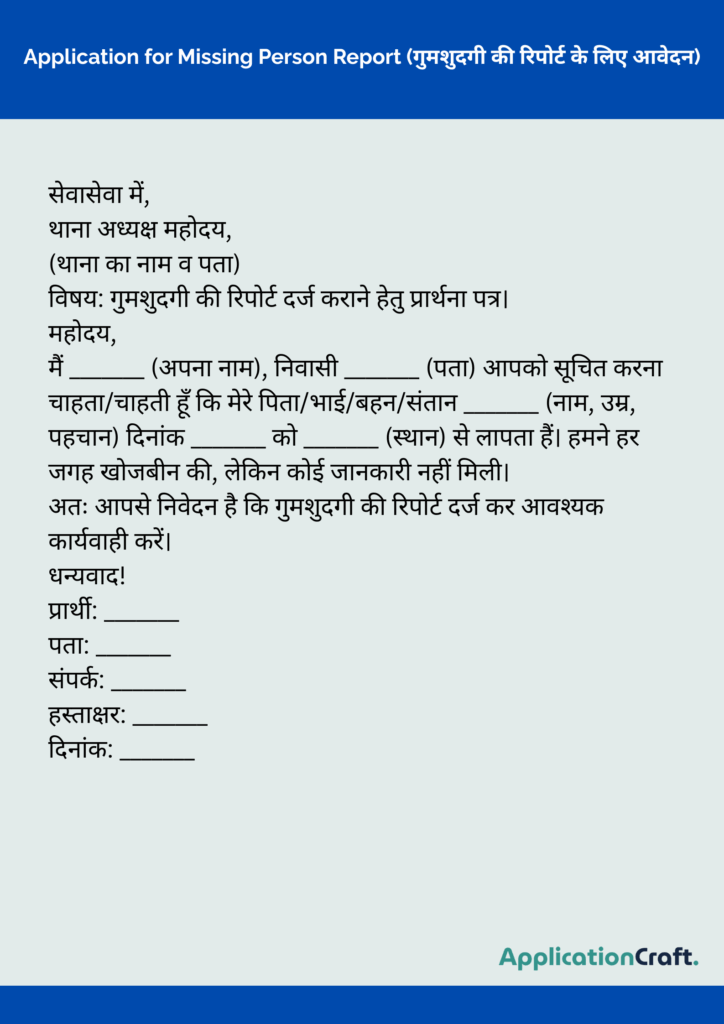 Application for Missing Person Report (गुमशुदगी की रिपोर्ट के लिए आवेदन)
सेवासेवा में,
थाना अध्यक्ष महोदय,
(थाना का नाम व पता)
विषय: गुमशुदगी की रिपोर्ट दर्ज कराने हेतु प्रार्थना पत्र।
महोदय,
मैं _______ (अपना नाम), निवासी _______ (पता) आपको सूचित करना
चाहता/चाहती हूँ कि मेरे पिता/भाई/बहन/संतान _______ (नाम, उम्र,
पहचान) दिनांक _______ को _______ (स्थान) से लापता हैं। हमने हर
जगह खोजबीन की, लेकिन कोई जानकारी नहीं मिली।
अतः आपसे निवेदन है कि गुमशुदगी की रिपोर्ट दर्ज कर आवश्यक
कार्यवाही करें।
धन्यवाद!
प्रार्थी: _______
पता: _______
संपर्क: _______
हस्ताक्षर: _______
दिनांक: _______
ApplicationCraft.